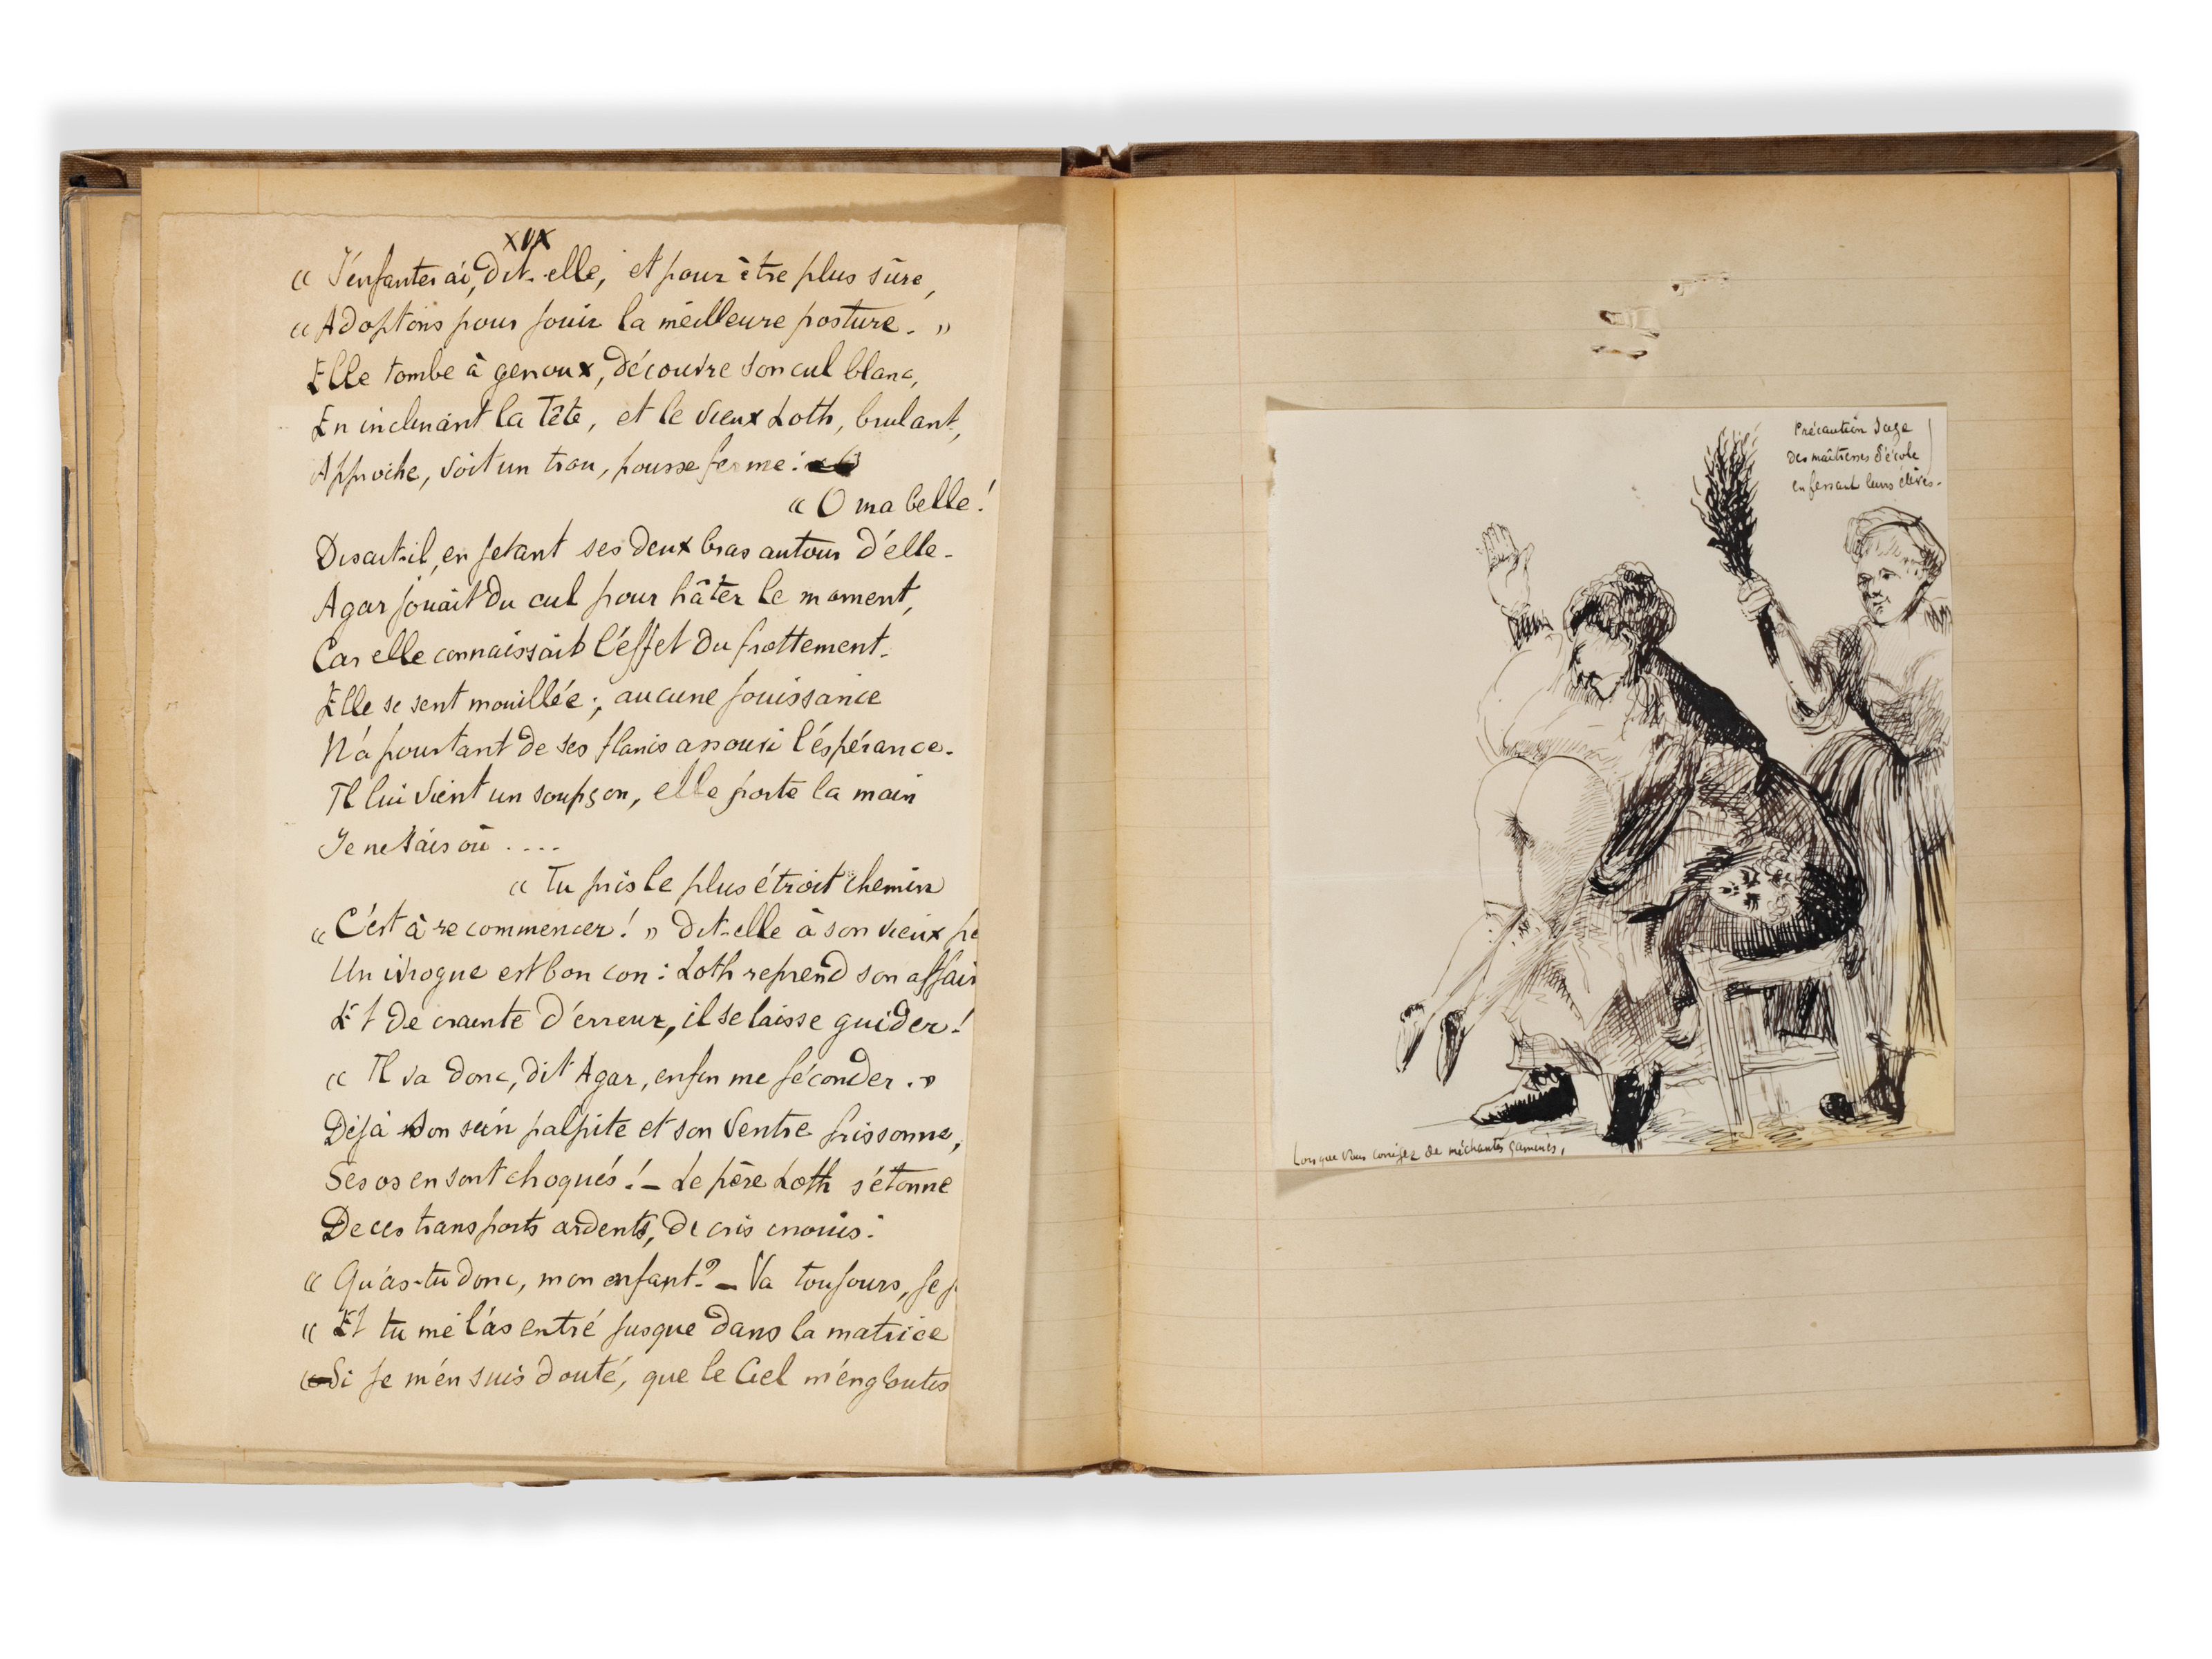 XIX
« J'enfanterai, dit-elle, et pour être plus sûre,
« Adoptons pour jouir la meilleure posture. »
Elle tombe à genoux, découvre son cul blanc,
En inclinant la tête, et le vieux Loth, brulant,
Approche, voit un trou, pousse ferme :
« O ma belle !
Disait-il, en jetant ses deux bras autour d'elle.
Agar jouait du cul pour hâter le moment,
Car elle connaissait l'effet du frottement.
Elle se sent mouillée ; aucune jouissance
N'a pourtant de ses flancs assouvi l'espérance.
Il lui vient un soupçon, elle porte la main
Je ne sais où ....
« Tu pris le plus étroit chemin
« C'est à recommencer ! » Dit-elle à son vieux pè
Un ivrogne est bon con : Loth reprend son affair
Et de crainte d'erreur, il se laisse guider !
« Il va donc, dit Agar, enfin me féconder. »
Déjà son sein palpite et son ventre frissonne,
Ses os en sont choqués ! – Le père Loth s'étonne
De ces transports ardents, de cris inouis :
« Qu'as-tu donc, mon enfant ? – Va toujours, je j
« Et tu me l'as entré jusque dans la matrice
Si je m'en suis douté, que le Ciel m'engloutis
Précaution sage
des maîtresses d'école
en fessant leurs élèves.
Lorsque vous corrigez de méchantes gamines,